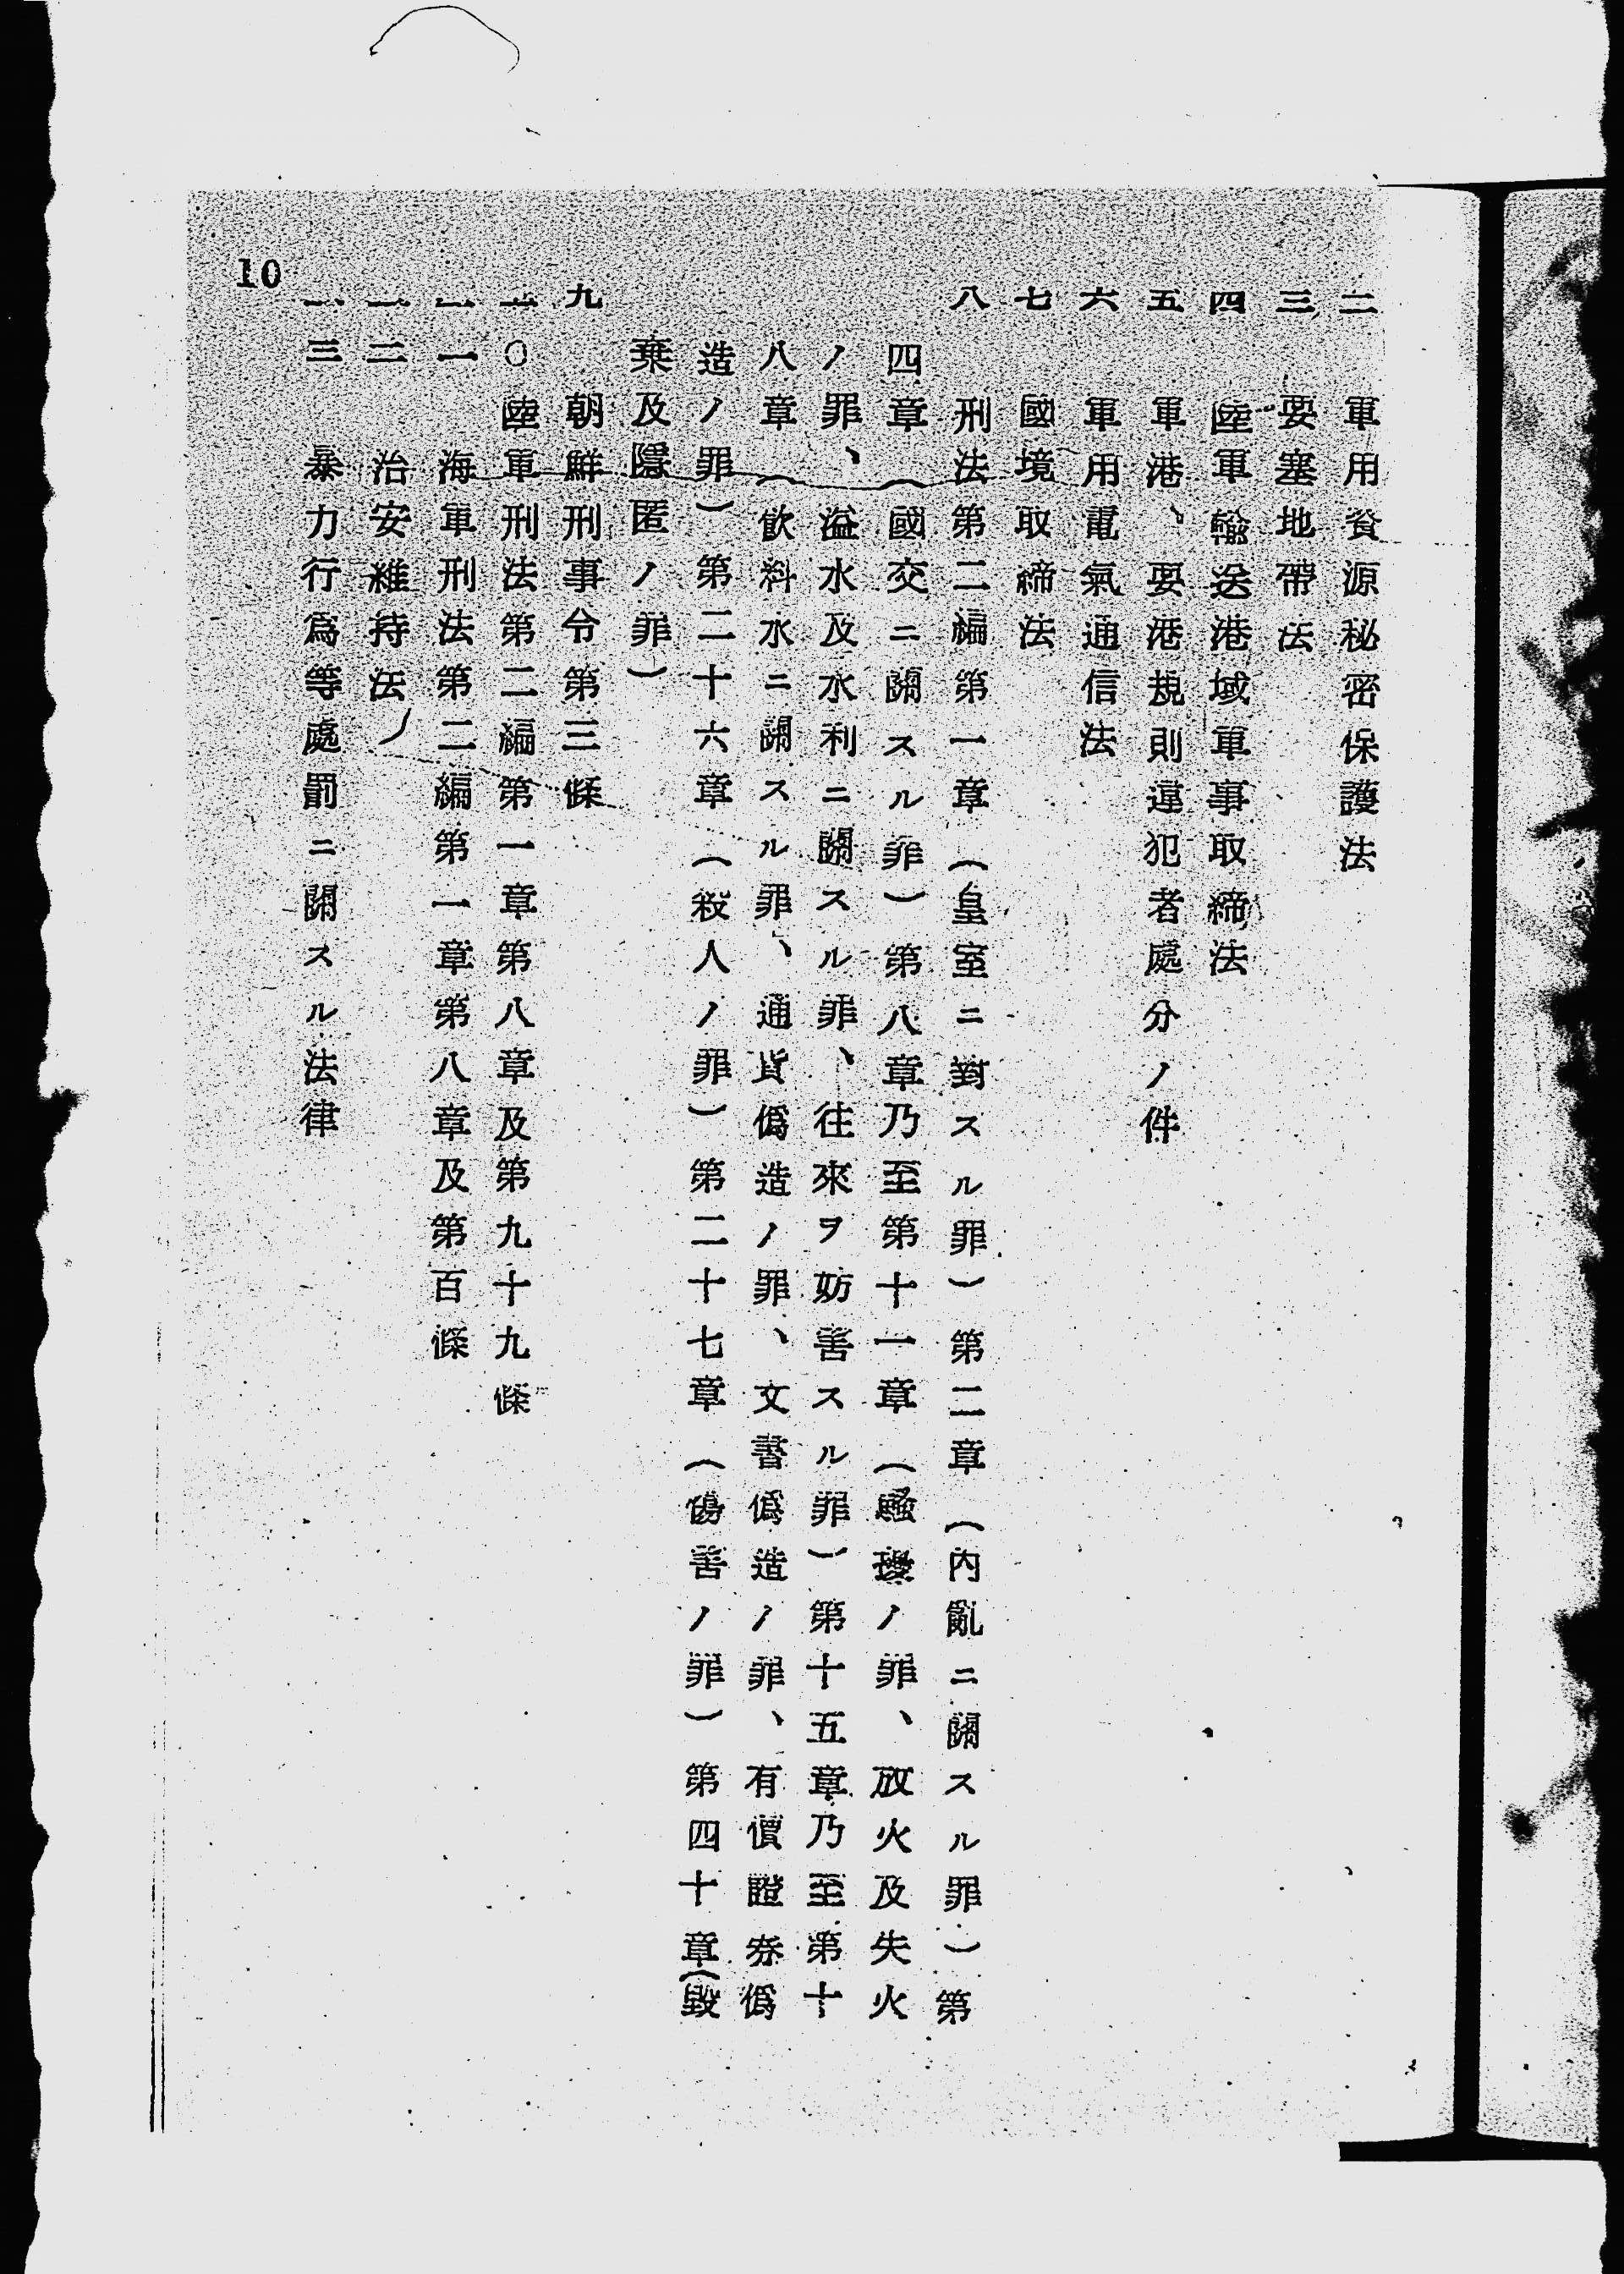 二 軍用資源秘密保護法
三 要塞地帶法
四 陸軍輸送港域軍事取締法
五 軍港、要港規則違犯者處分ノ件
六 軍用電氣通信法
七 國境取締法
八 刑法第二編第一章（皇室ニ對スル罪）第二章（內亂ニ關スル罪）第
四章（國交ニ關スル罪）第八章乃至第十一章（騷擾ノ罪、放火及失火
ノ罪、溢水及水利ニ關スル罪、往來ヲ妨害スル罪）第十五章乃至第十
八章（飮料水ニ關スル罪、通貨僞造ノ罪、文書僞造ノ罪、有價證券僞
造ノ罪）第二十六章（殺人ノ罪）第二十七章（傷害ノ罪）第四十章（毀
棄及隱匿ノ罪）
九 朝鮮刑事令第三條
一〇 陸軍刑法第二編第一章第八章及第九十九條
一一 海軍刑法第二編第一章第八章及第百條
一二 治安維持法
一三 暴力行爲等處罰ニ關スル法律
10